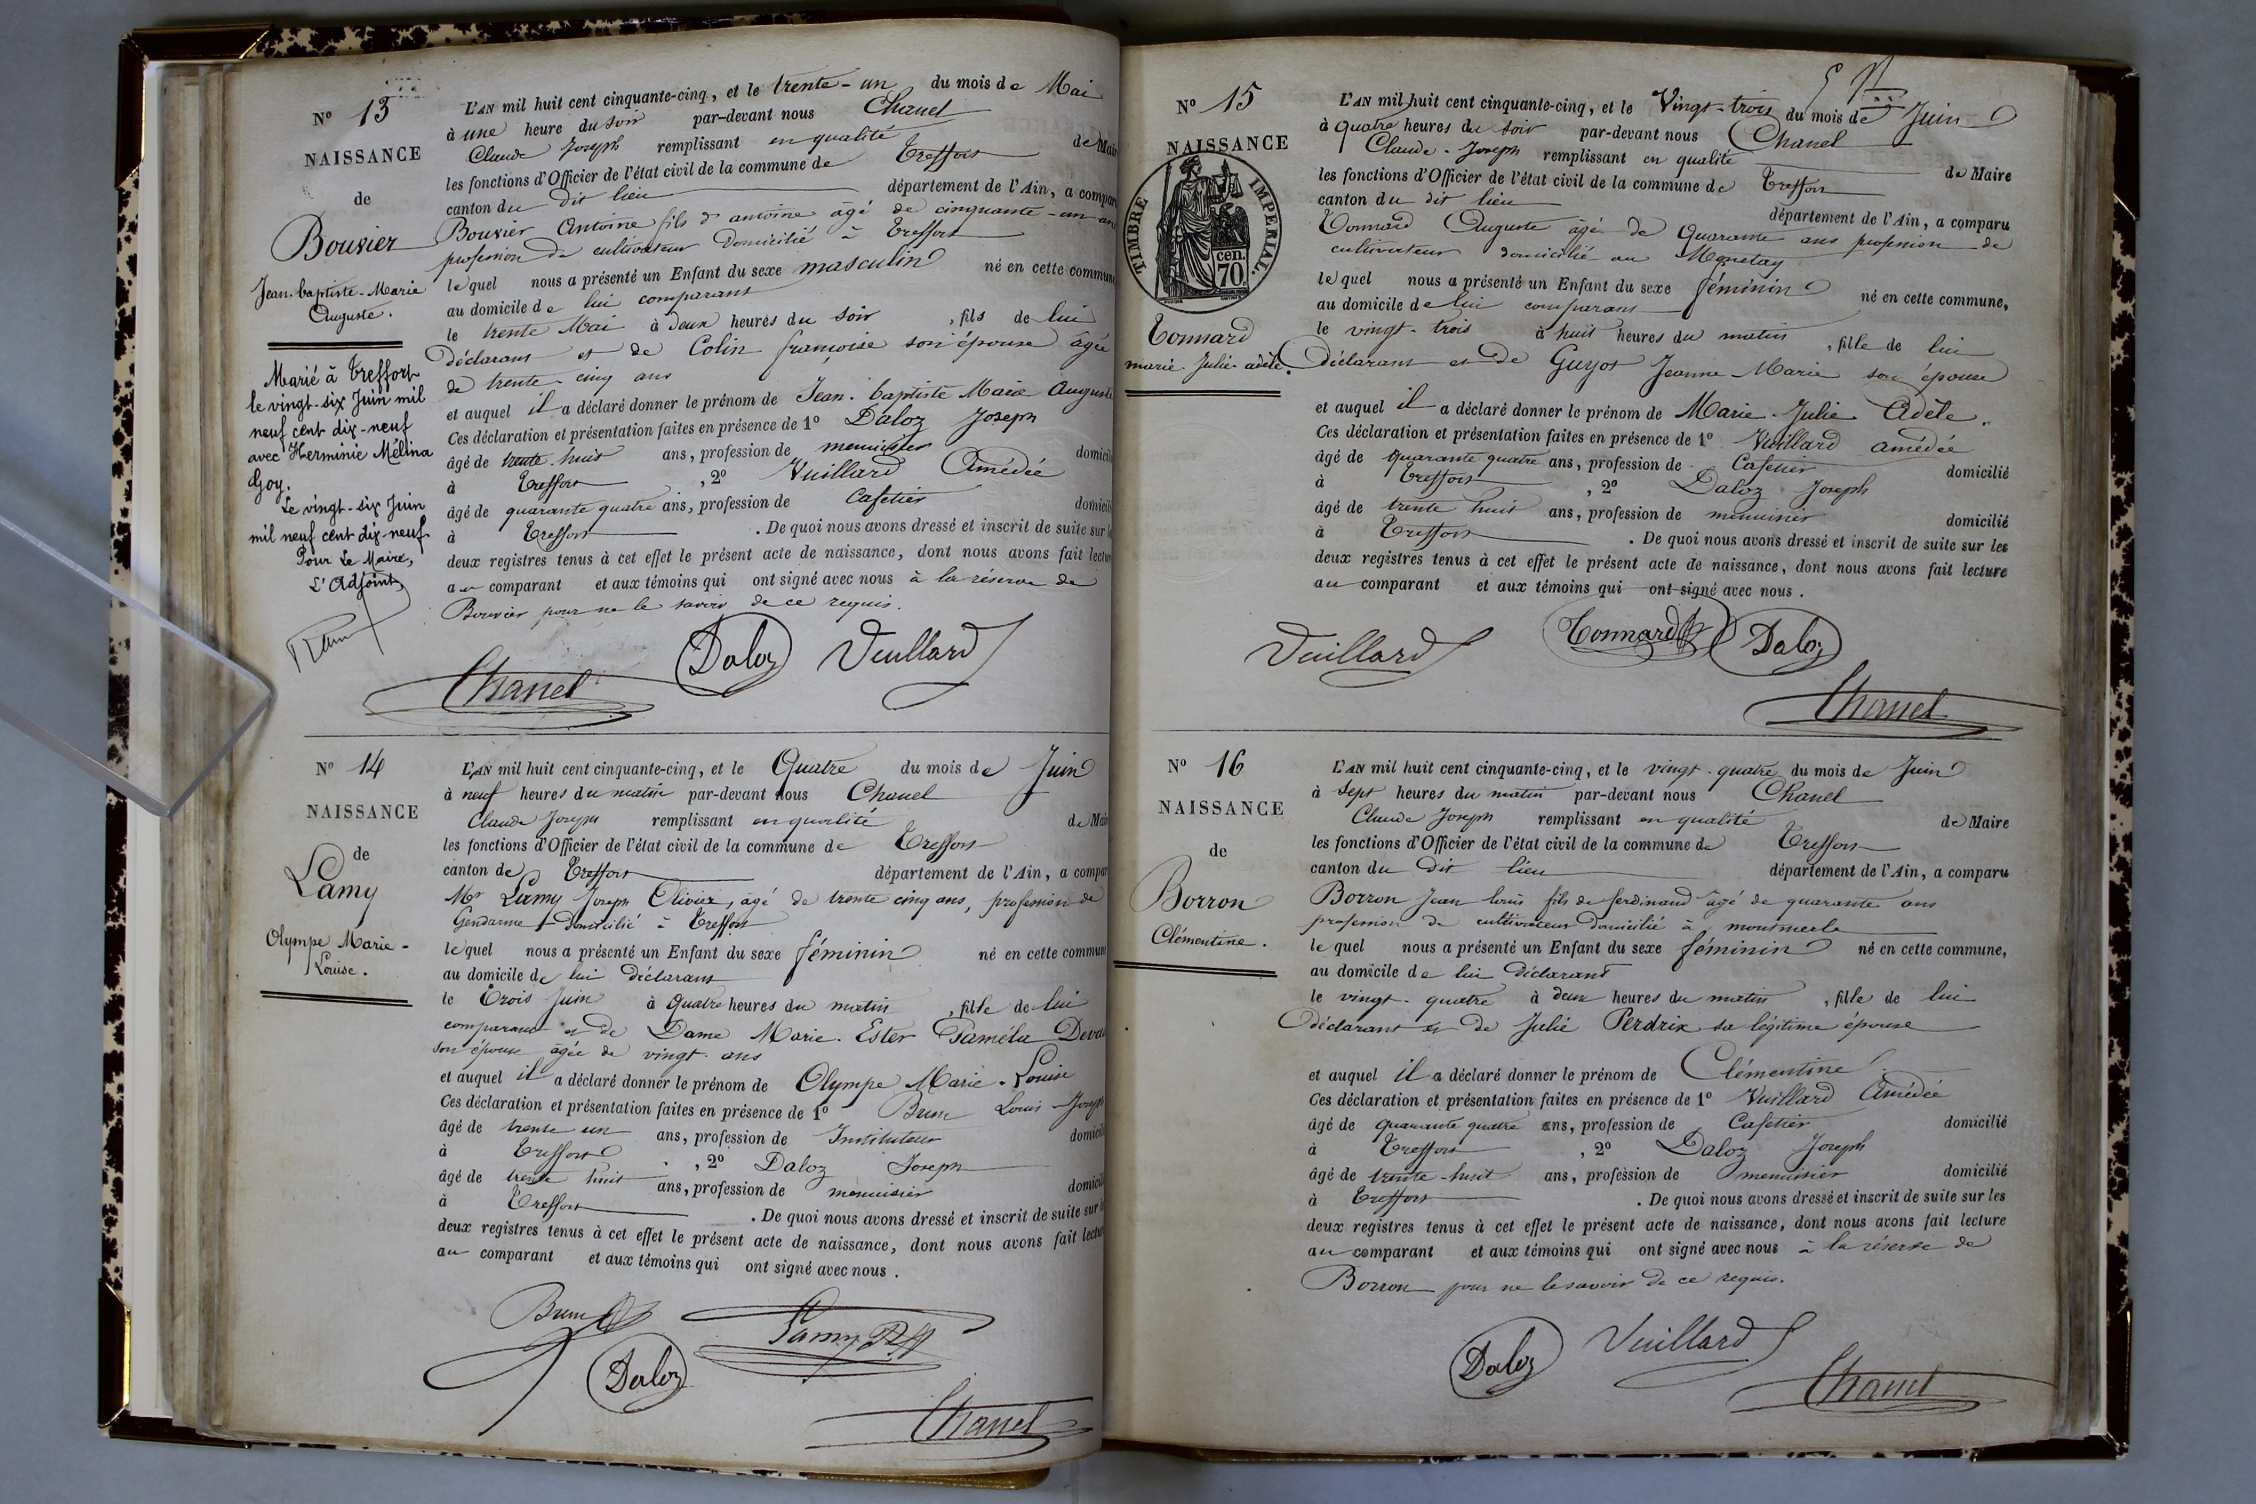 N° 13
NAISSANCE
de
Bouvier
Jean-baptiste-Marie
Auguste.
Marié à Treffort
le vingt-six Juin mil
neuf cent dix-neuf
avec Herminie Mélina
Goy.
Le vingt-six Juin
mil neuf cent dix-neuf
Pour Le Maire,
L'Adjoint,
L'AN mil huit cent cinquante-cinq, et le trente-un du mois de Mai
à une heure du soir par-devant nous Chanel
Claude Joseph remplissant en qualité de Maire
les fonctions d'Officier de l'état civil de la commune de Treffort
canton du dit lieu département de l'Ain, a comparu
Bouvier Antoine fils d'antoine âgé de cinquante-un ans
profession de cultivateur domicilié à Treffort
lequel nous a présenté un Enfant du sexe masculin né en cette commune
au domicile de lui comparant
le trente Mai à deux heures du soir, fils de lui
Déclarant et de Colin françoise son épouse âgée
de trente-cinq ans
et auquel il a déclaré donner le prénom de Jean-baptiste Marie Auguste
Ces déclaration et présentation faites en présence de 1° Daloz Joseph
âgé de trente-huit ans, profession de menuisier domicilié
à Treffort, 2° Vuillard Amédée
âgé de quarante quatre ans, profession de Cafetier domicilié
à Treffort. De quoi nous avons dressé et inscrit de suite sur les
deux registres tenus à cet effet le présent acte de naissance, dont nous avons fait lecture
au comparant et aux témoins qui ont signé avec nous à la réserve de
Bouvier pour ne le savoir de ce requis.
Daloz Vuillard
Chanel
N° 14
NAISSANCE
de
Lamy
Olympe Marie-
Louise.
L'AN mil huit cent cinquante-cinq, et le Quatre du mois de Juin
à neuf heures du matin par-devant nous Chanel
Claude Joseph remplissant en qualité de Maire
les fonctions d'Officier de l'état civil de la commune de Treffort
canton de Treffort département de l'Ain, a comparu
Mr Lamy Joseph Olivier, âgé de trente cinq ans, profession de
Gendarme domicilié à Treffort
lequel nous a présenté un Enfant du sexe féminin né en cette commune
au domicile de lui déclarant
le Trois Juin à Quatre heures du matin, fille de lui
comparant et de Dame Marie-Ester Paméla
son épouse âgée de vingt ans
et auquel il a déclaré donner le prénom de Olympe Marie-Louise
Ces déclaration et présentation faites en présence de 1° Brun Louis Joseph
âgé de trente un ans, profession de Instituteur domicilié
à Treffort, 2° Daloz Joseph
âgé de trente huit ans, profession de menuisier domicilié
à Treffort. De quoi nous avons dressé et inscrit de suite sur les
deux registres tenus à cet effet le présent acte de naissance, dont nous avons fait lecture
au comparant et aux témoins qui ont signé avec nous.
Brun Lamy
Daloz
Chanel
N° 15
NAISSANCE
TIMBRE IMPERIAL.
cen.
70.
Tonnard
marie Julie adèle.
L'AN mil huit cent cinquante-cinq, et le Vingt-trois du mois de Juin
à quatre heures du soir par-devant nous Chanel
Claude-Joseph remplissant en qualité de Maire
les fonctions d'Officier de l'état civil de la commune de Treffort
canton du dit lieu département de l'Ain, a comparu
Tonnard Auguste âgé de Quarante ans profession de
cultivateur domicilié au Monetay
lequel nous a présenté un Enfant du sexe féminin né en cette commune,
au domicile de lui comparant
le vingt-trois à huit heures du matin, fille de lui
Déclarant et de Guyot Jeanne-Marie son épouse
et auquel il a déclaré donner le prénom de Marie-Julie Adèle.
Ces déclaration et présentation faites en présence de 1° Vuillard amédée
âgé de quarante quatre ans, profession de Cafetier domicilié
à Treffort, 2° Daloz Joseph
âgé de trente huit ans, profession de menuisier domicilié
à Treffort. De quoi nous avons dressé et inscrit de suite sur les
deux registres tenus à cet effet le présent acte de naissance, dont nous avons fait lecture
au comparant et aux témoins qui ont signé avec nous.
Vuillard Tonnard Daloz
Chanel
N° 16
NAISSANCE
de
Borron
Clémentine.
L'AN mil huit cent cinquante-cinq, et le vingt-quatre du mois de Juin
à sept heures du matin par-devant nous Chanel
Claude Joseph remplissant en qualité de Maire
les fonctions d'Officier de l'état civil de la commune de Treffort
canton du dit lieu département de l'Ain, a comparu
Borron Jean louis fils de ferdinand âgé de quarante ans
profession de cultivateur domicilié à montmerle
lequel nous a présenté un Enfant du sexe féminin né en cette commune,
au domicile de lui déclarant
le vingt-quatre à deux heures du matin, fille de lui
déclarant et de Julie Perdrix sa légitime épouse
et auquel il a déclaré donner le prénom de Clémentine
Ces déclaration et présentation faites en présence de 1° Vuillard Amédée
âgé de quarante quatre ans, profession de Cafetier domicilié
à Treffort, 2° Daloz Joseph
âgé de trente-huit ans, profession de menuisier domicilié
à Treffort. De quoi nous avons dressé et inscrit de suite sur les
deux registres tenus à cet effet le présent acte de naissance, dont nous avons fait lecture
au comparant et aux témoins qui ont signé avec nous à la réserve de
Borron pour ne le savoir de ce requis.
Daloz Vuillard
Chanel